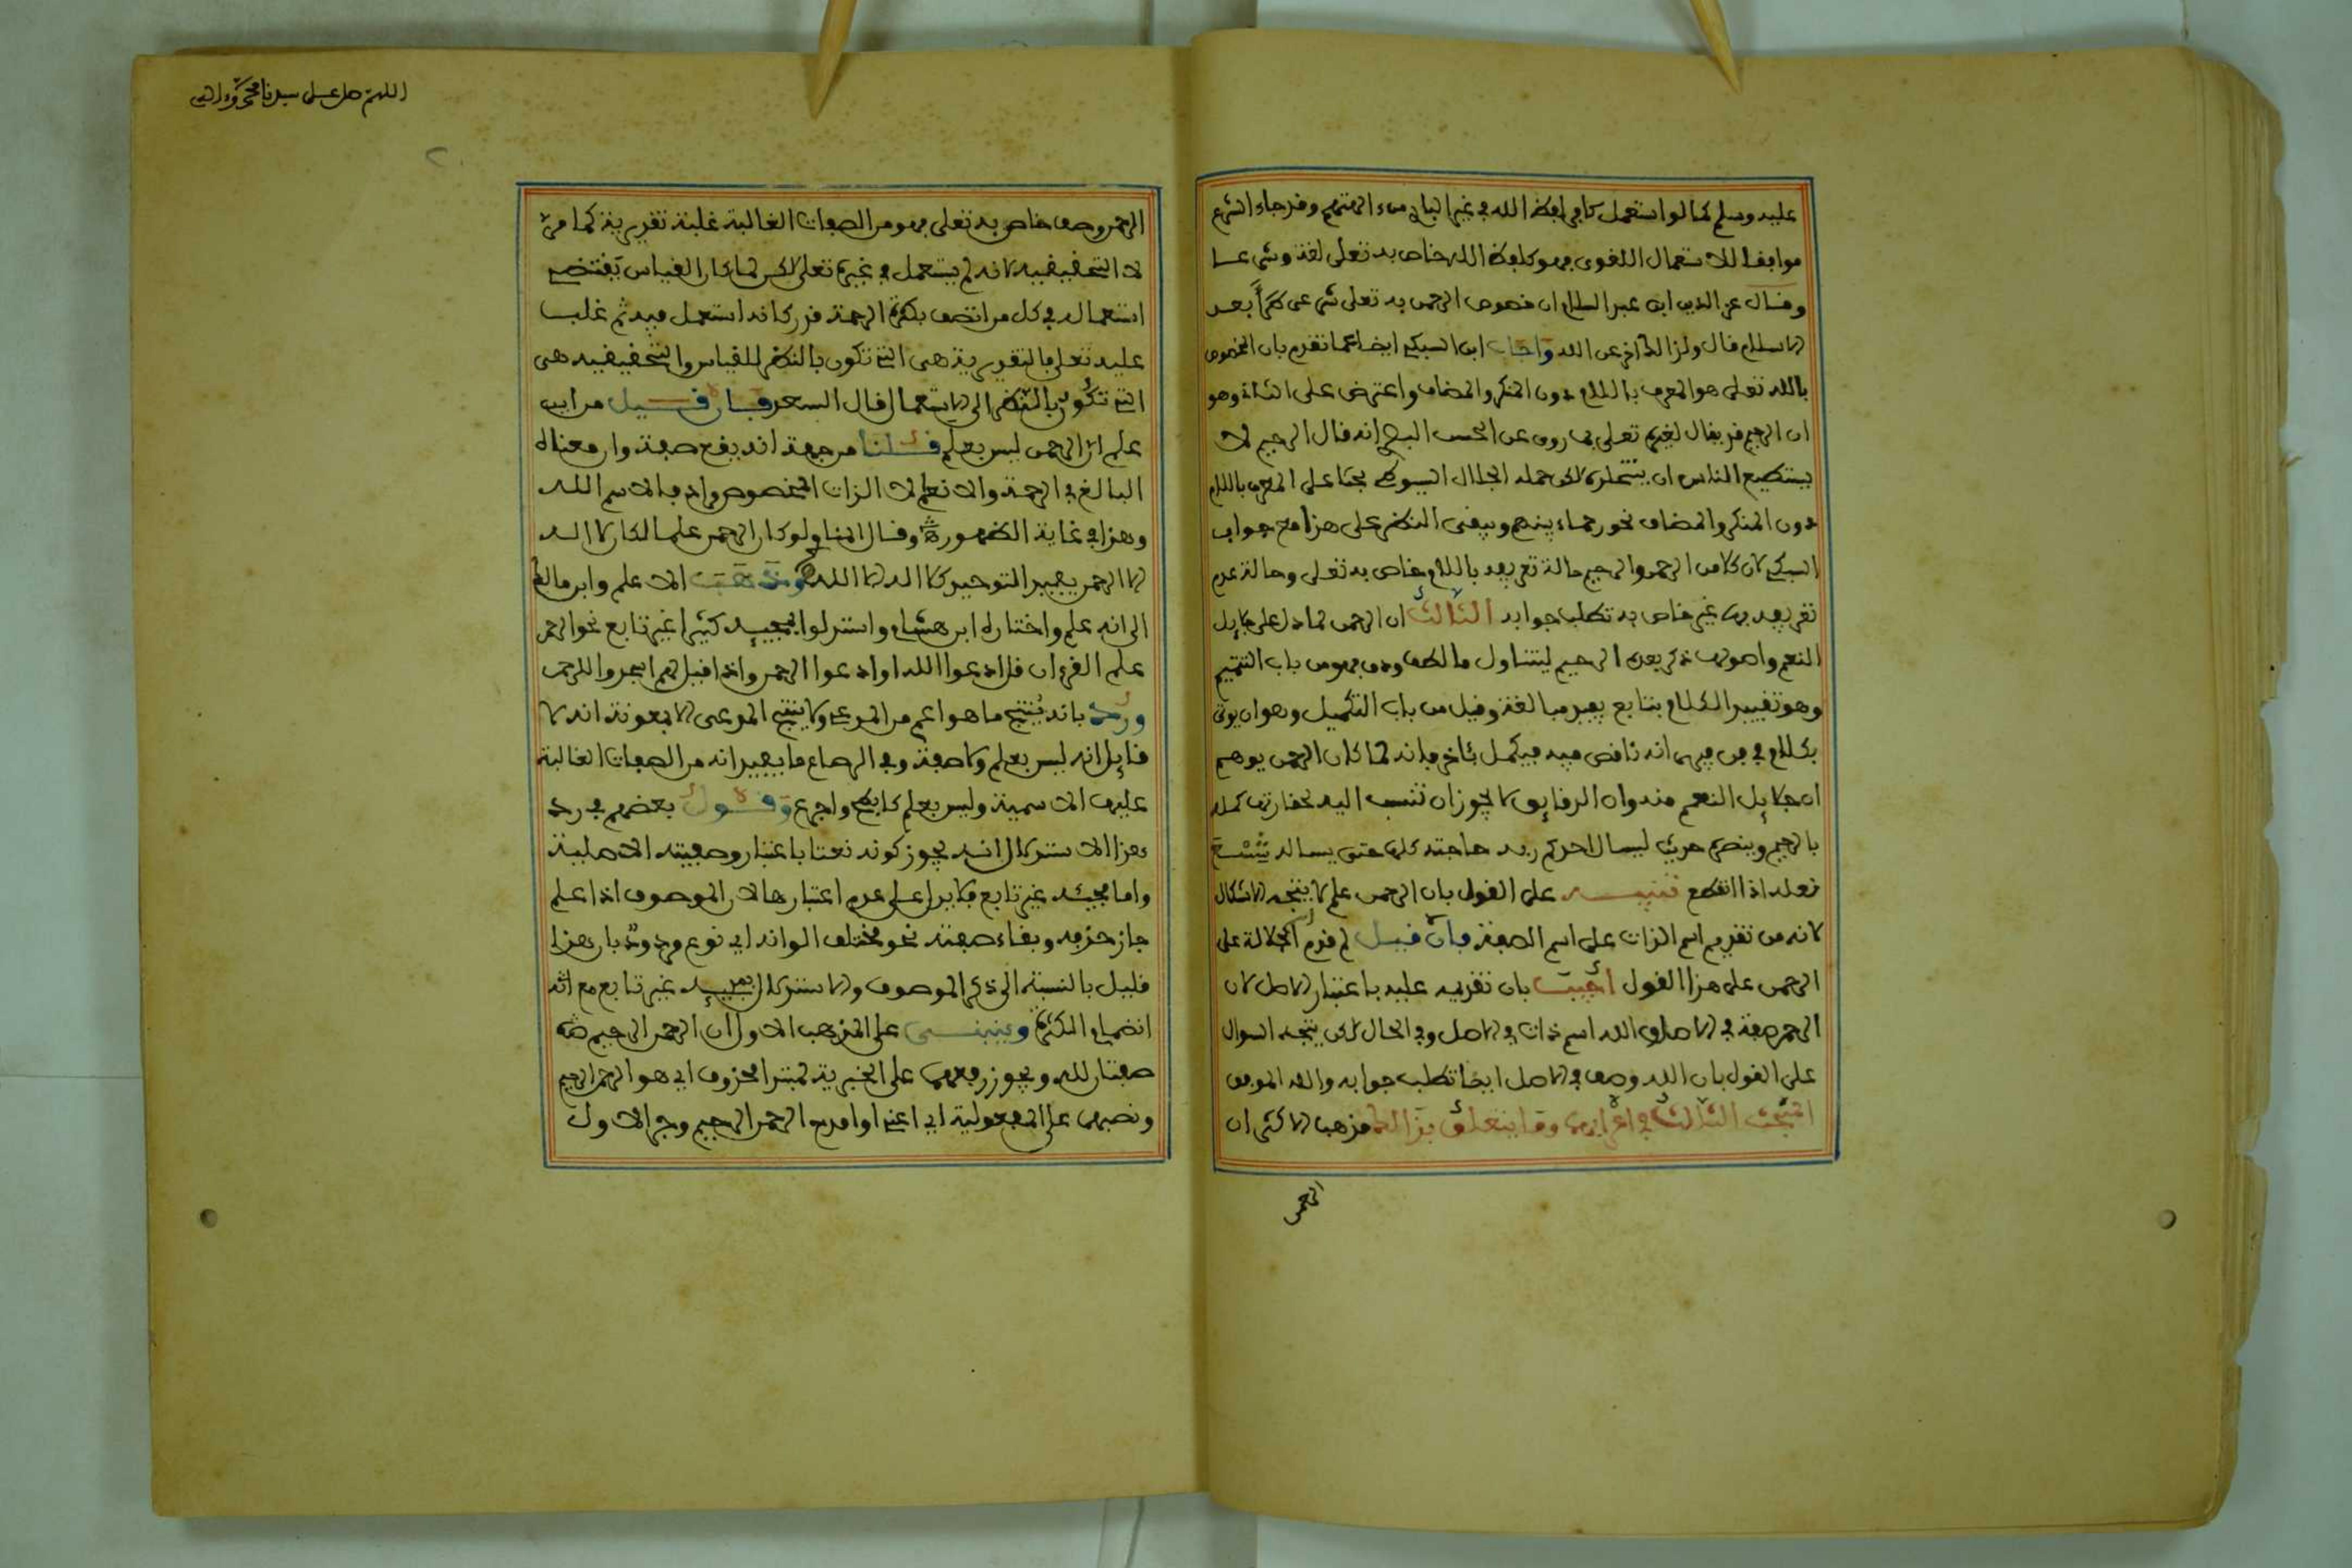 عليه وسلم كما لو استعمل كافر لفظ الله في غير الباري من ءالهتهم وقد جاء الشرع
موافقا للاستعمال اللغوى فهو كلفظ الله خاص به تعلى لغة وشرعا
وقال عز الدين ابن عبد السلام ان خصوص الرحمن به تعلى شرعى طرأ بعد
الاسلام قال ولذا لم عن الله واجاب ابن السبكي ايضا عما تقدم بان المخصوص
بالله تعلى هو المعرف باللام دون المنكر والمضاف واعترض على الثاني وهو
ان الرحيم قد يقال لغيره تعلى بما روى عن الحسن البصرى انه قال الرحيم لا
يستطيع الناس ان ينتحلوه لاكن حمله الجلال السيوطي بحثا على المعرف باللام
دون المنكر والمضاف نحو رحماء بينهم ويبقى النظر على هذا مع جواب
السبكي لان كلا من الرحمن والرحيم حالة تعريفه باللام خاص به تعلى وحالة عدم
تعريفه بها غير خاص به تطلب جوابه الثالث ان الرحمن لما دل على جلايل
النعم واصولها ذكر بعده الرحيم ليتناول ما لطف ودق فهو من باب التتميم
وهو تقييد الكلام بتابع يفيد مبالغة وقيل من باب التكميل وهو ان يوتى
بكلام في فن فيرى انه ناقص فيه فيكمل بئاخر فانه لما كان الرحمن يوهم
ان جلايل النعم منه وان الرقايق لا يجوز ان تنسب اليه لحقارتها كمله
بالرحيم وينصره حديث ليسال احدكم ربه حاجته كلها حتى يساله شسع
نعله اذا انقطع تنبيه على القول بان الرحمن علم لا يتجه الاشكال
لانه من تقديم اسم الذات على اسم الصفة فان قيل لم قدم الجلالة على
الرحمن على هذا القول اجيب بان تقديمه عليه باعتبار الاصل لان
الرحمن صفة في الاصل والله اسم ذات في الاصل وفي الحال لاكن يتجه السوال
على القول بان الله وصف في الاصل ايضا تطلب جوابه والله الموفق
المبحث الثالث في اعرابهما وما يتعلق بذالك فذهب الاكثر ان
الرحمن
اللهم صل على سيدنا محمد وءاله
٢
الرحمن وصف خاص به تعلى فهو من الصفات الغالبة غلبة تقديرية كما مر
لا التحقيقية لانه لم يستعمل في غيره تعلى لاكن لما كان القياس يقتضي
استعماله في كل من اتصف بكثرة الرحمة قدر كانه استعمل فيه ثم غلب
عليه تعلى فالتقديرية هى التي تكون بالنظر للقياس والتحقيقية هى
التي تكون بالنظر الى الاستعمال قال السعد فان قيل من اين
علم ان الرحمن ليس بعلم قلنا من جهة انه يقع صفة وان معناه
البالغ في الرحمة والانعام لا الذات المخصوص وادف الاسم الله
وهذا في غاية الظهور وقال لو كان الرحمن علما لكان لا اله
الا الرحمن يفيد التوحيد كلا اله الا الله وذهب الاعلم وابن مالك
الى انه علم واختاره ابن هشام واستدلوا لمجيئه كثيرا غير تابع نحو الرحمن
علم القرءان قل ادعوا الله او ادعوا الرحمن واذا قيل لهم اسجدوا للرحمن
ورد بانه ينتج ما هو اعم من المدعى ولا ينتج المدعى الا بمعونة انه لا
قايل انه ليس بعلم ولا صفة وفي الرصاع ما يفيد انه من الصفات الغالبة
عليها الاسمية وليس بعلم كابطح واجرع وقول بعضهم في رد
هذا الاستدلال انه يجوز كونه نعتا باعتبار وصفيته الاصلية
واما مجيئه غير تابع فلا يدل على عدم اعتبارها لان الموصوف اذا علم
جاز حذفه وبقاء صفته نحو مختلف الوانه اي نوع مردود بان هذا
قليل بالنسبة الى ذكر الموصوف والاستدلال بمجيئه غير تابع مع
انضمام الكثرة وينبني على المذهب الاول ان الرحمن الرحيم
صفتان لله ويجوز رفعهما على الخبرية لمبتدا محذوف اي هو الرحمن الرحيم
ونصبهما على المفعولية اي اعني او امدح الرحمن الرحيم وجر الاول